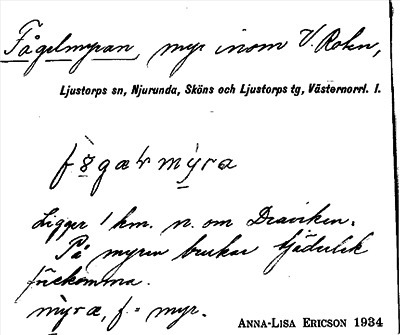 Fågelmyran, myr inom V. Rokn,
Ljustorps sn, Njurunda, Sköns och Ljustorps tg, Västernorrl. l.
Ligger 1 km. n. om Draviken.
På myren brukar tjäderlek
förekomma.
myra, f. = myr.
ANNA-LISA ERICSON 1934